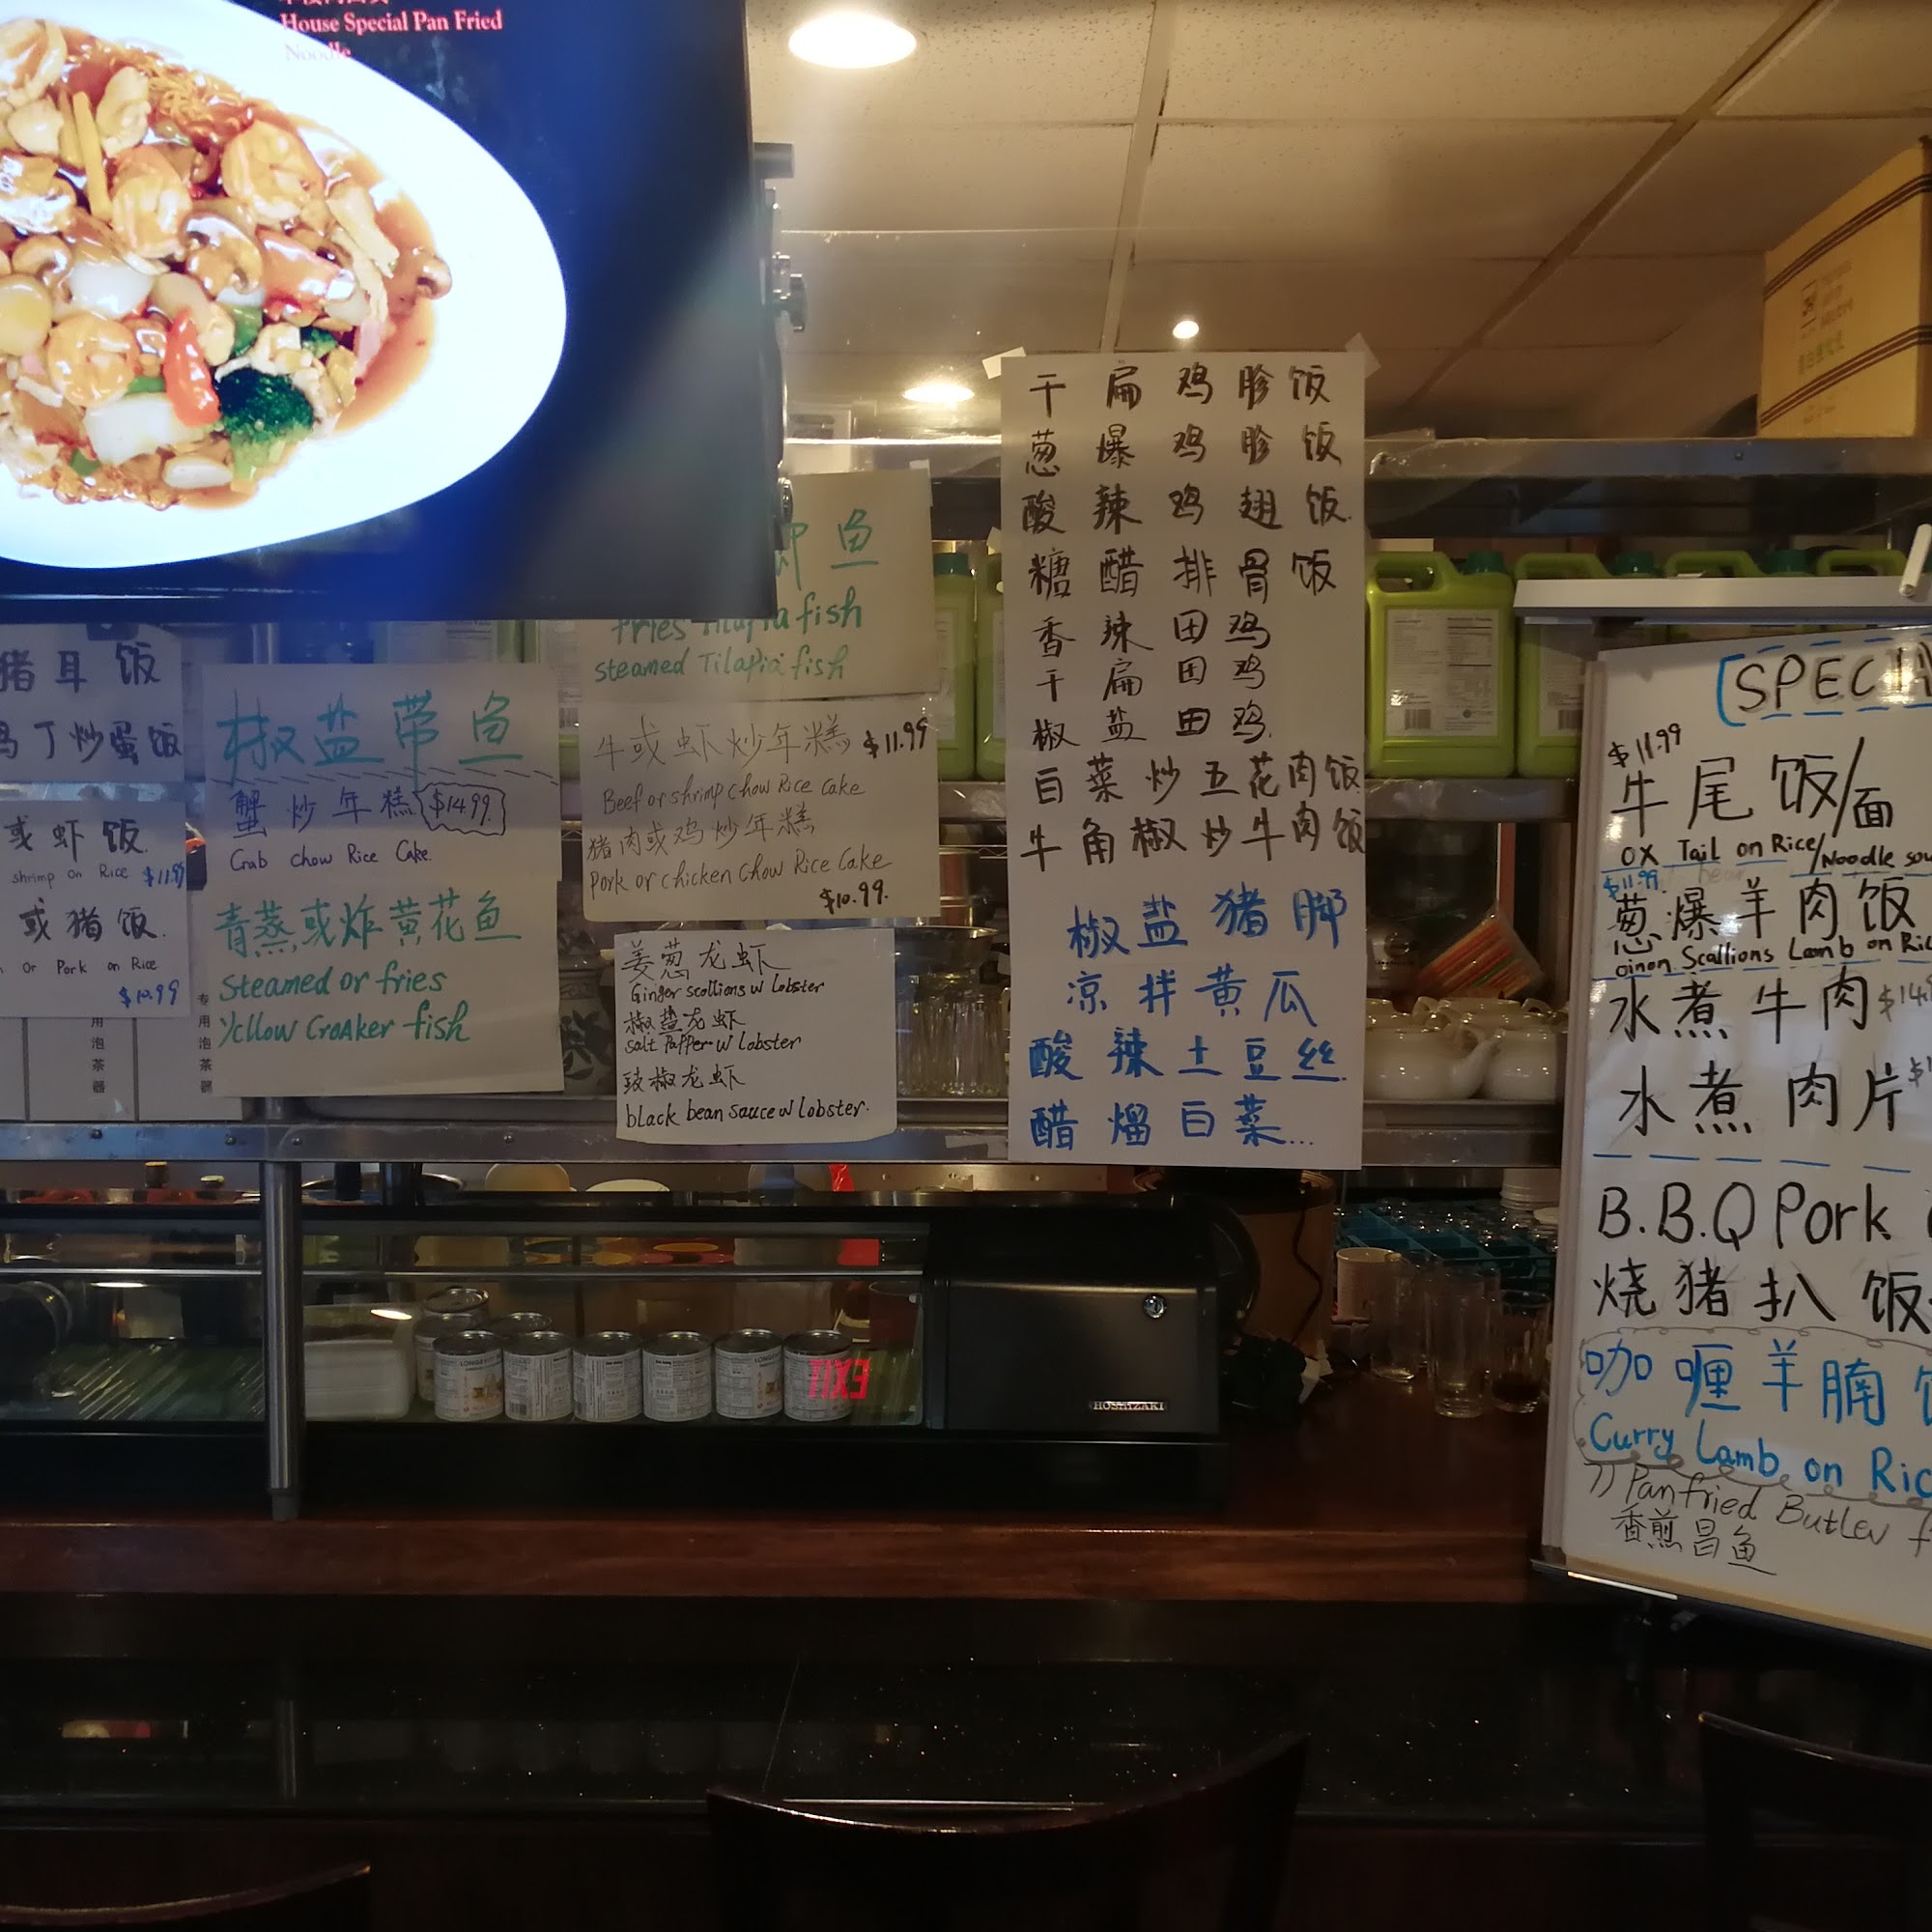 House Special Pan Fried
Noodle
猪耳饭
丁炒蛋饭
或虾饭
shrimp on Rice $11.99
或猪饭
or Pork on Rice
$10.99
专用泡茶器
用泡茶器
椒盐带鱼
蟹炒年糕 $14.99
Crab chow Rice Cake.
青蒸或炸黄花鱼
Steamed or fries
Yellow CroAker fish
鱼
fries Tilapia fish
steamed Tilapia fish
牛或虾炒年糕 $11.99
Beef or shrimp chow Rice Cake
猪肉或鸡炒年糕
Pork or chicken Chow Rice Cake
$10.99.
姜葱龙虾
Ginger scallions w lobster
椒盐龙虾
salt Papper w lobster
豉椒龙虾
black bean sauce w lobster.
干扁鸡胗饭
葱爆鸡胗饭
酸辣鸡翅饭
糖醋排骨饭
香辣田鸡
干扁田鸡
椒盐田鸡
白菜炒五花肉饭
牛角椒炒牛肉饭
椒盐猪脚
凉拌黄瓜
酸辣土豆丝
醋熘白菜...
HOSHIZAKI
EXIT
$11.99
牛尾饭/面
OX Tail on Rice/Noodle
$11.99
葱爆羊肉饭
oinon Scallions Lamb on
水煮牛肉
水煮肉片
B.B.Q Pork
烧猪扒饭
咖喱羊腩
Curry Lamb on
Panfried
香煎昌鱼